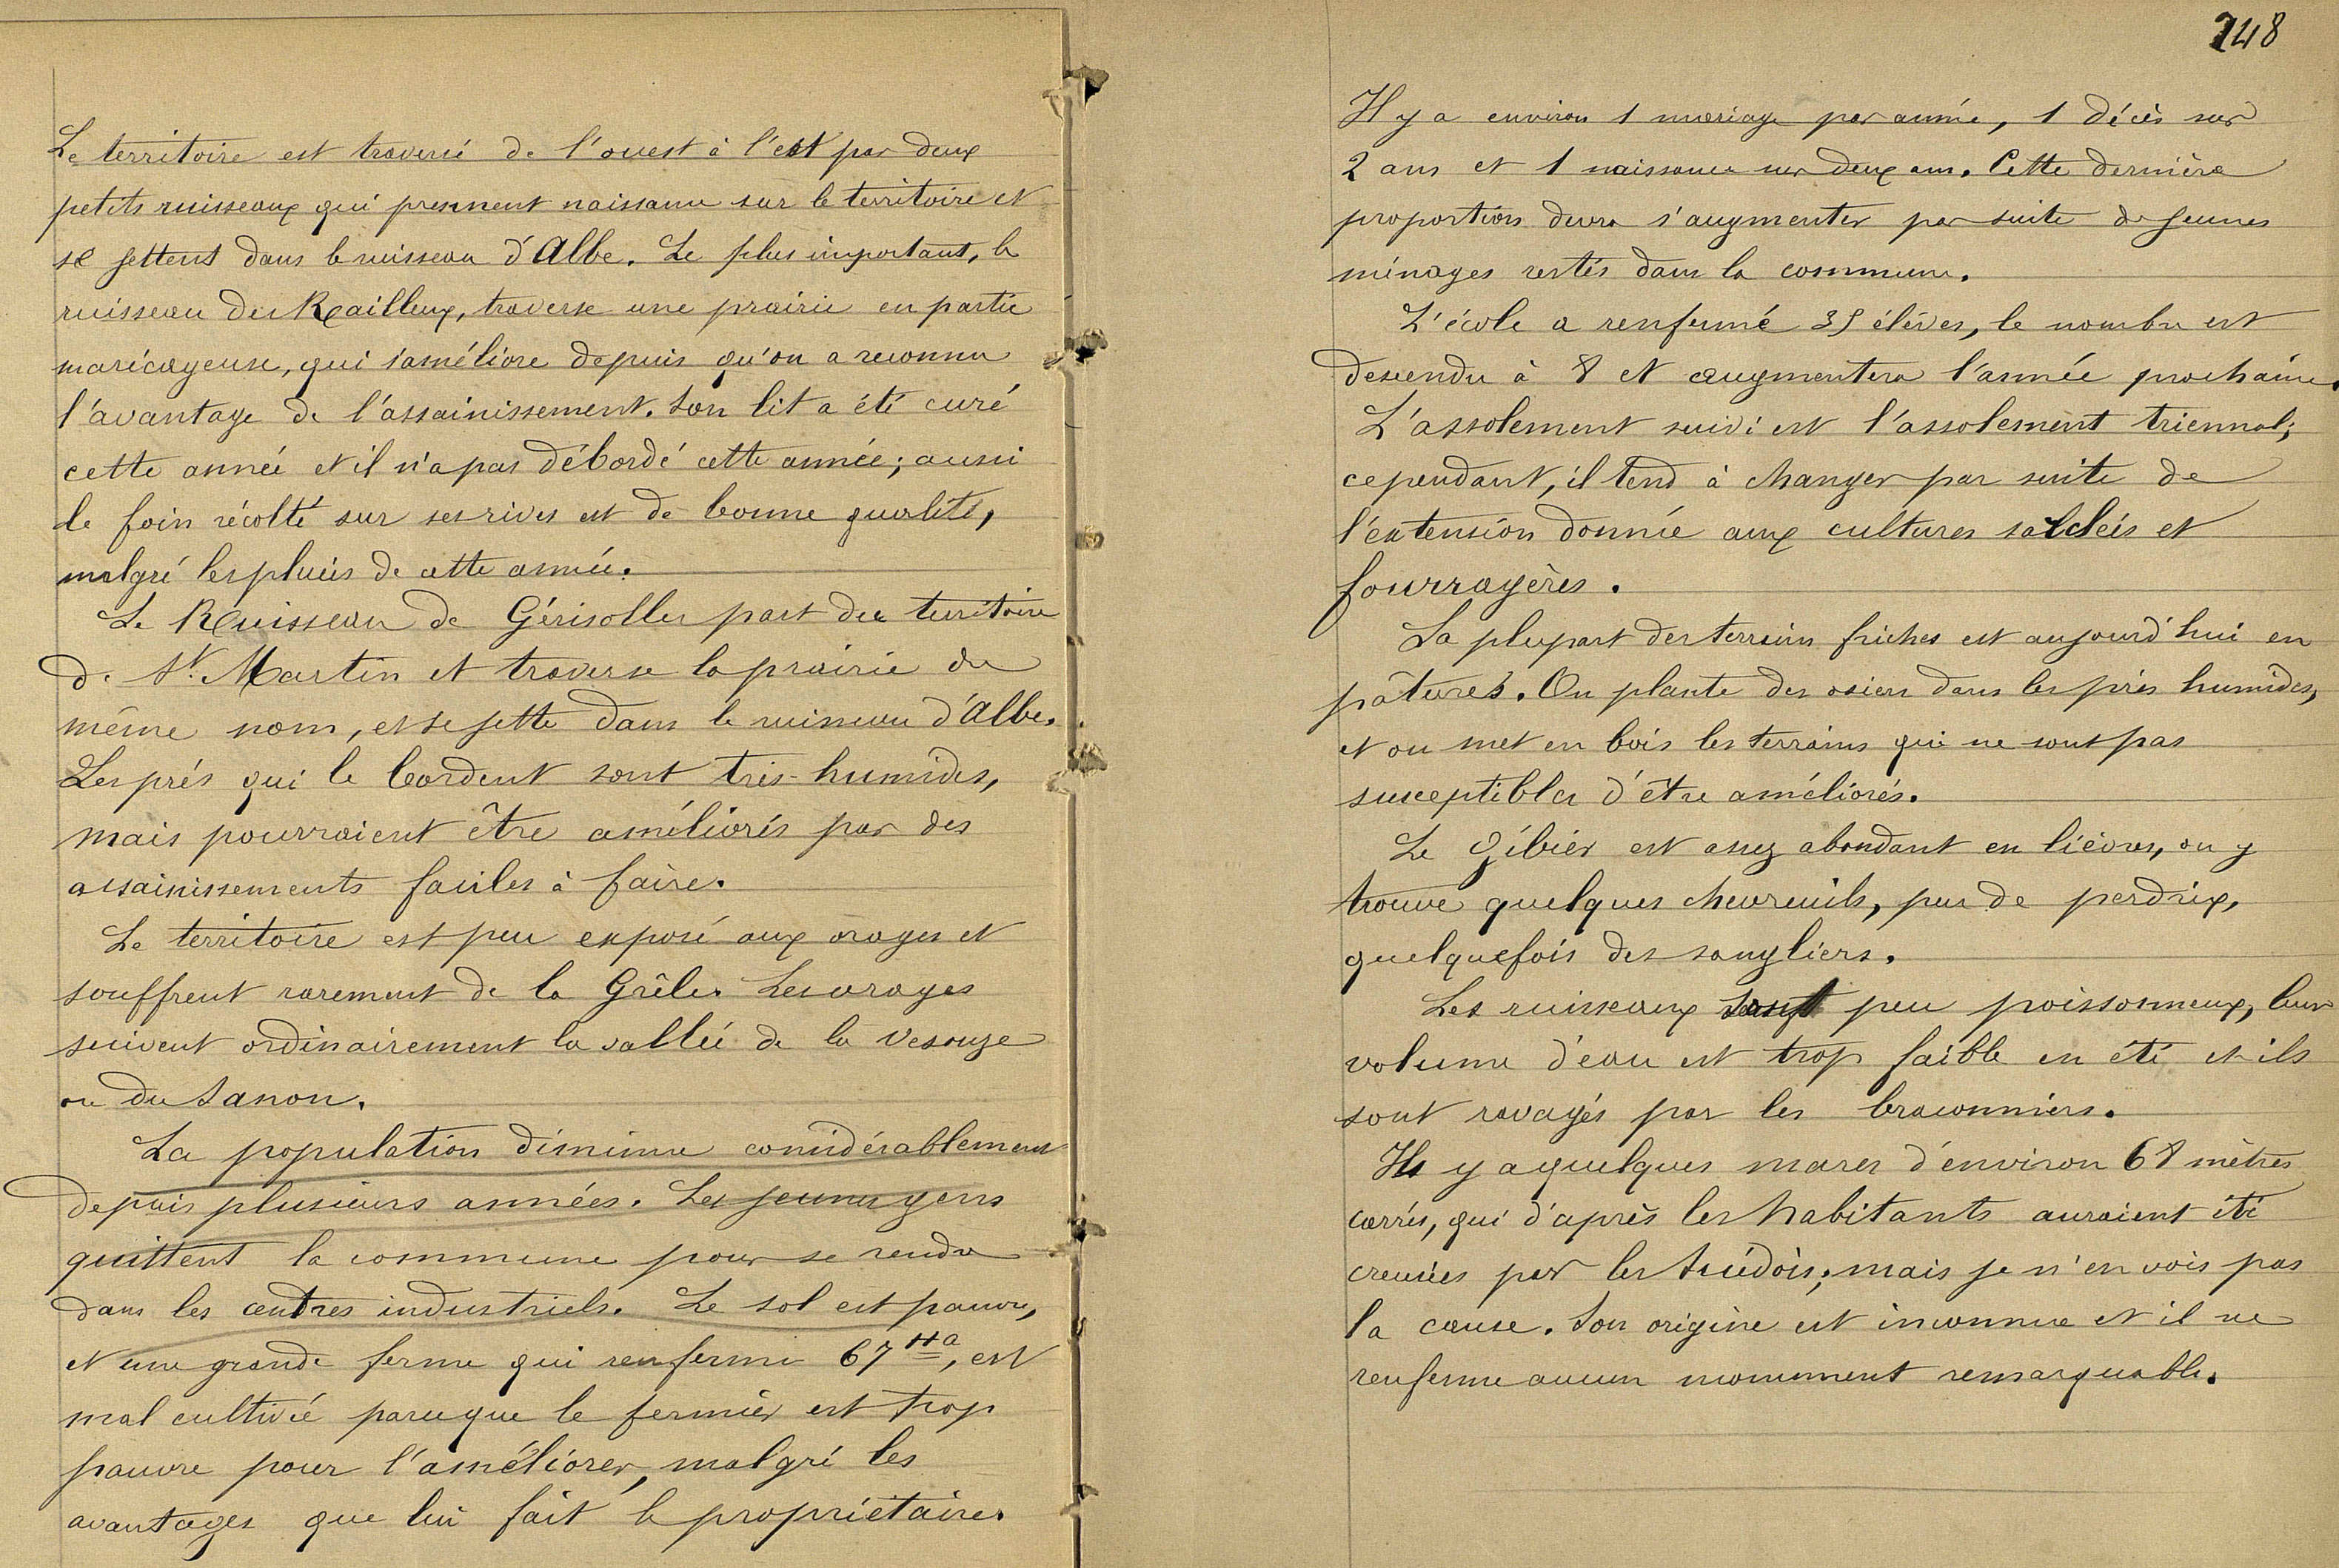 Le territoire est traversé de l'ouest à l'est par deux
petits ruisseaux qui prennent naissance sur le territoire et
se jettent dans le ruisseau d'Albe. Le plus important, le
ruisseau des Railleux, traverse une prairie en partie
marécageuse, qui s'améliore depuis qu'on a reconnu
l'avantage de l'assainissement. Son lit a été curé
cette année et il n'a pas débordé cette année; aussi
le foin récolté sur ses rives est de bonne qualité,
malgré les pluies de cette année.
Le Ruisseau de Gérisolles part du territoire
de St. Martin et traverse la prairie du
même nom, et se jette dans le ruisseau d'Albe.
Les prés qui le bordent sont très-humides,
mais pourraient être améliorés par des
assainissements faciles à faire.
Le territoire est peu exposé aux orages et
souffrent rarement de la Grêle. Les orages
suivent ordinairement la vallée de la Vesouze
ou du Sanon.
La population diminue considérablement
depuis plusieurs années. Les jeunes gens
quittent la commune pour se rendre
dans les centres industriels. Le sol est pauvre,
et une grande ferme qui renferme 67 Ha, est
mal cultivée parceque le fermier est trop
pauvre pour l'améliorer, malgré les
avantages que lui fait le propriétaire.
248
Il y a environ 1 mariage par année, 1 décès sur
2 ans et 1 naissance sur deux ans. Cette dernière
proportion devra s'augmenter par suite de jeunes
ménages restés dans la commune.
L'école a renfermé 35 élèves, le nombre est
descendu à 8 et augmentera l'année prochaine.
L'assolement suivi est l'assolement triennal;
cependant, il tend à changer par suite de
l'extension donnée aux cultures sarclées et
fourragères.
La plupart des terrains friches est aujourd'hui en
pâtures. On plante des osiers dans les prés humides,
et on met en bois les terrains qui ne sont pas
susceptibles d'être améliorés.
Le Gibier est assez abondant en lièvres, on y
trouve quelques chevreuils, peu de perdrix,
quelquefois des sangliers.
Les ruisseaux sont peu poissonneux, leur
volume d'eau est trop faible en été et ils
sont ravagés par les braconniers.
Il y a quelques mares d'environ 68 mètres
carrés, qui d'après les habitants auraient été
creusées par les Suédois; mais je n'en vois pas
la cause. Son origine est inconnue et il ne
renferme aucun monument remarquable.